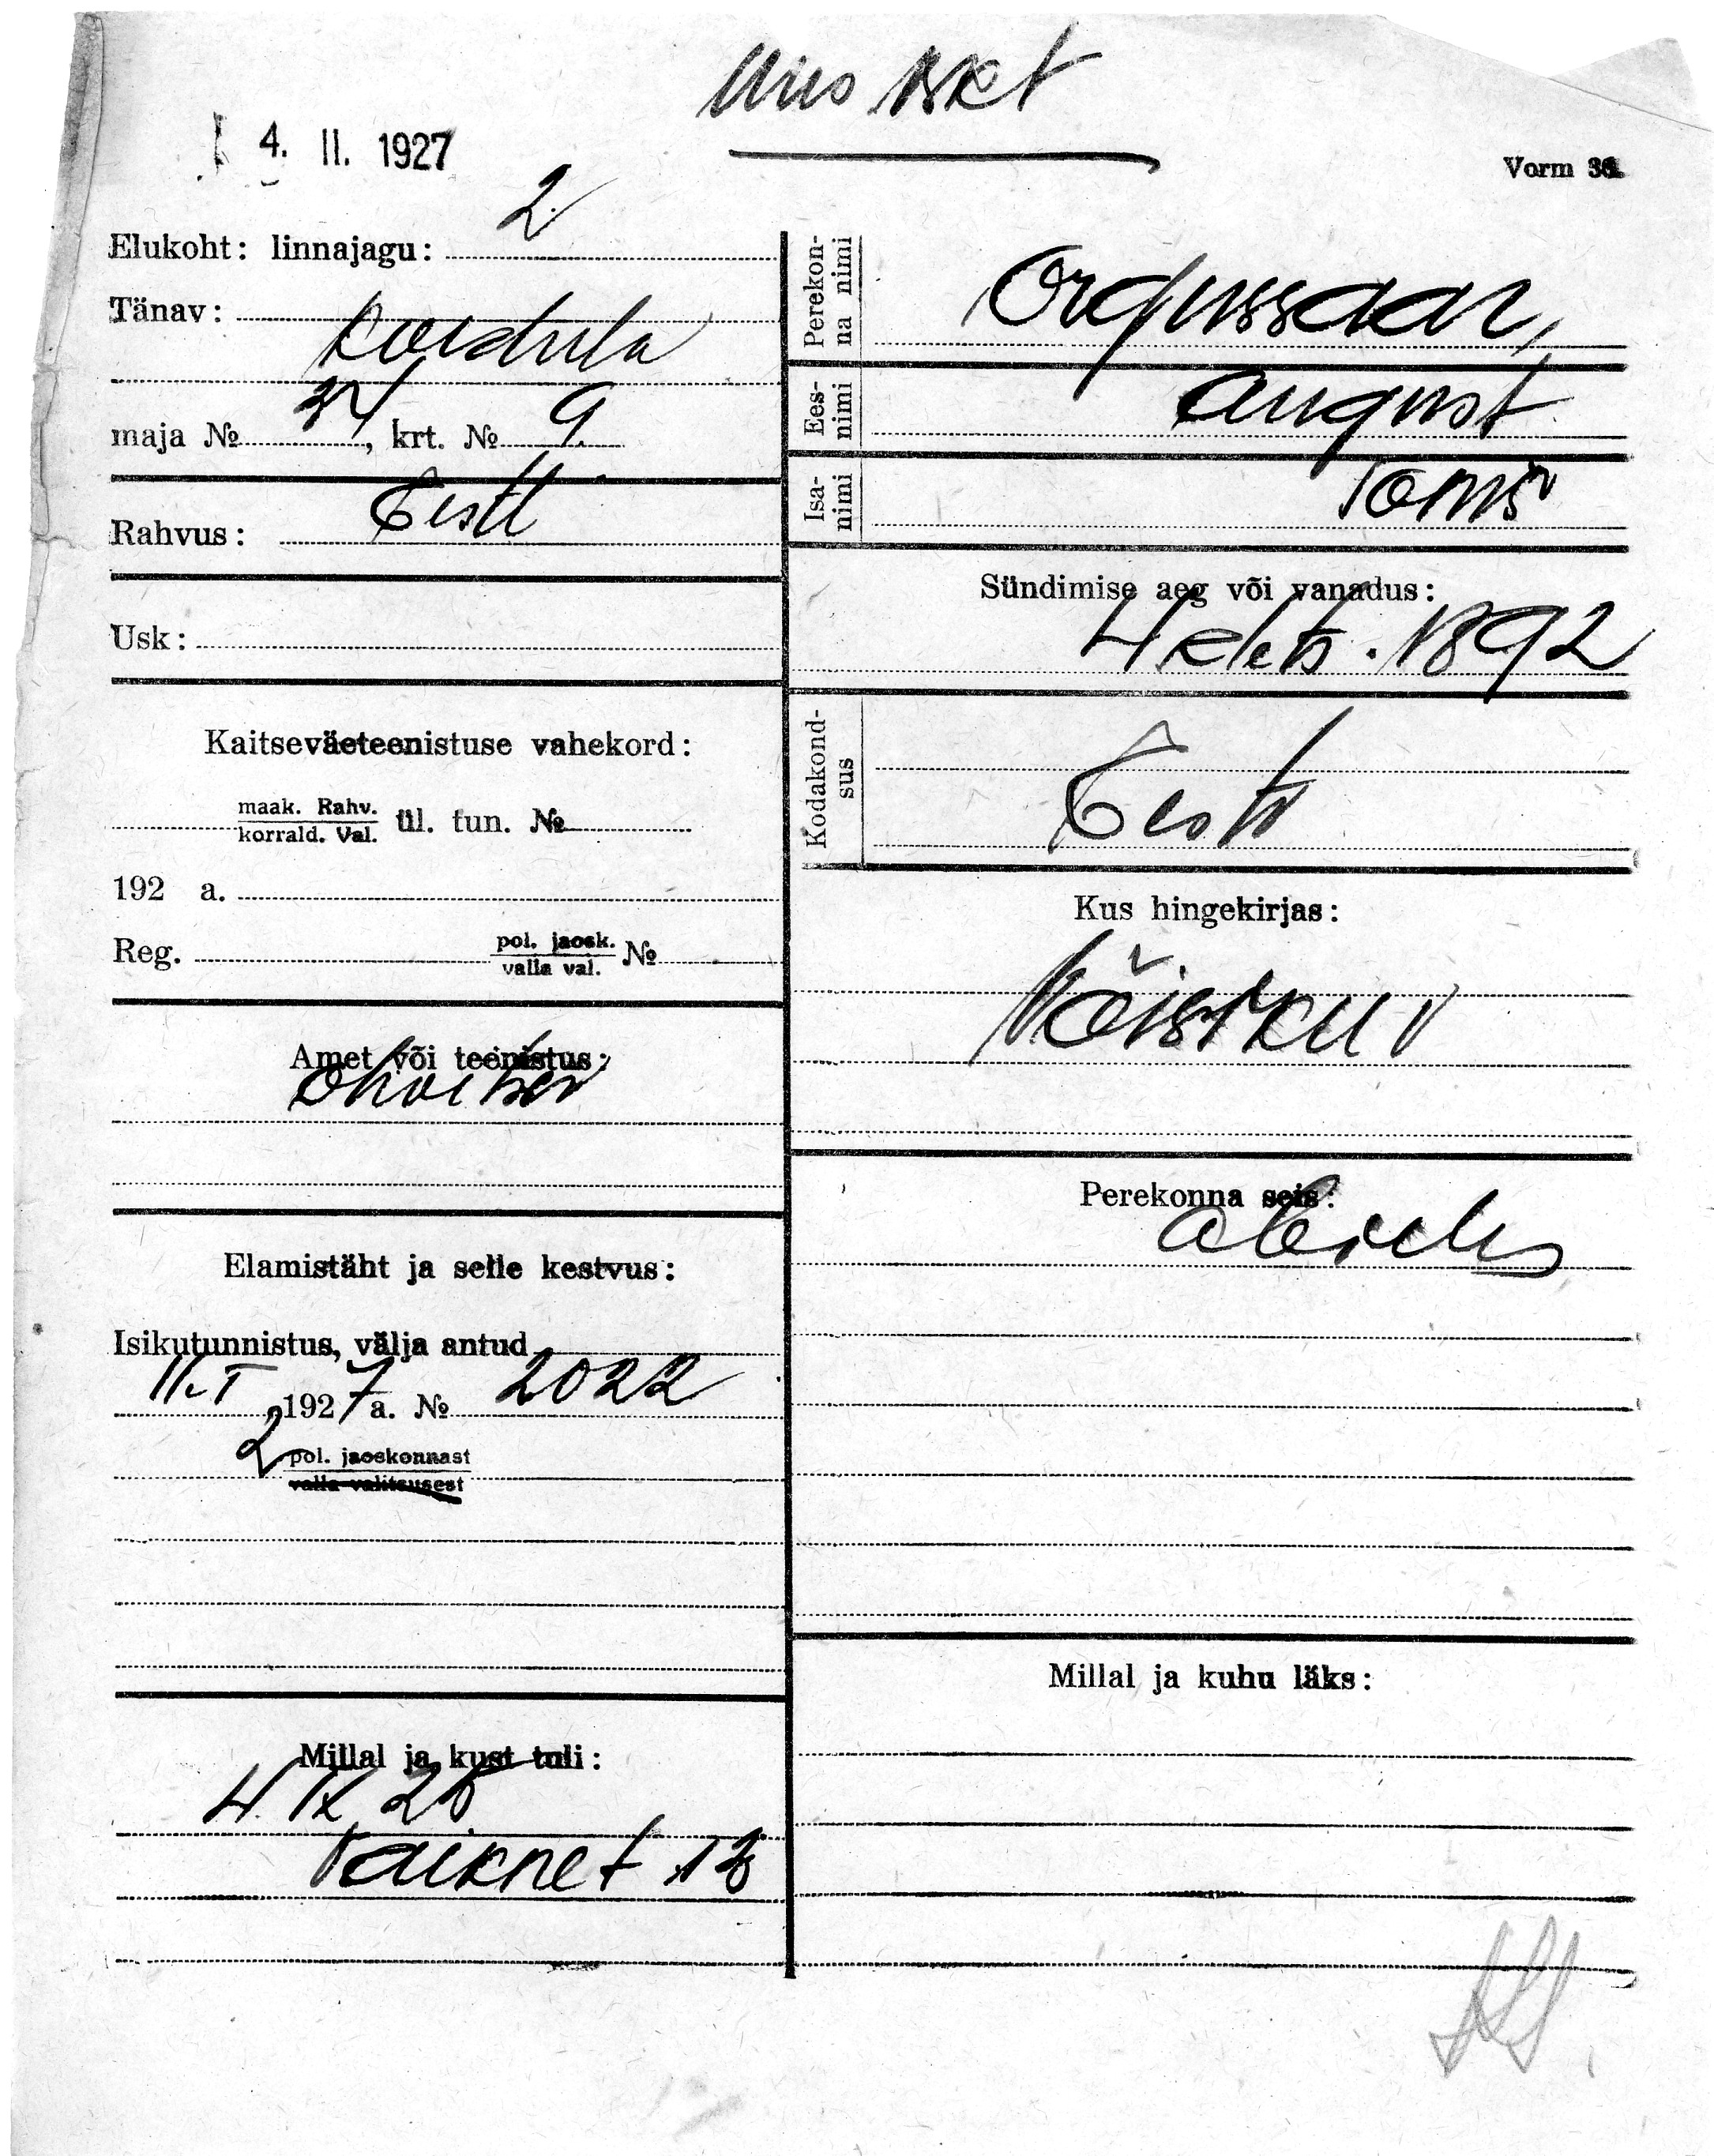 4. II. 1927
Vorm 36.
Elukoht: linnajagu: 2
Tänav: Koidula
maja № 34, krt. № 9.
Rahvus: Eesti
Usk:
Kaitseväeteenistuse vahekord:
maak. Rahv.
korrald. Val. ül. tun. №
192 a.
Reg. pol. jaosk.
valla val. №
Amet või teenistus:
Elamistäht ja selle kestvus:
Isikutunnistus, välja antud
11. I 1927 a. № 2022
2 pol. jaoskonnast
valla valitsusest
Millal ja kust tuli:
4. IX 26
Vaikne t 13
Perekonna nimi Orgussaar,
Eesnimi August
Isanimi Tõnis
Sündimise aeg või vanadus:
4 dets. 1892
Kodakondsus Eesti
Kus hingekirjas:
Võisiku v
Perekonna seis:
abielus
Millal ja kuhu läks: